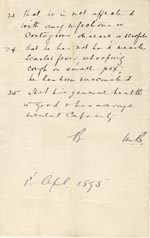 23 That he is not afflicted
with any infectious or
contagious disease
24 That he has not had measles
Scarlet fever, whooping
cough or small pox,
he has been vaccinated
25 That his general health
is Good & has average
mental Capacity
M.B.
1st Apl 1895